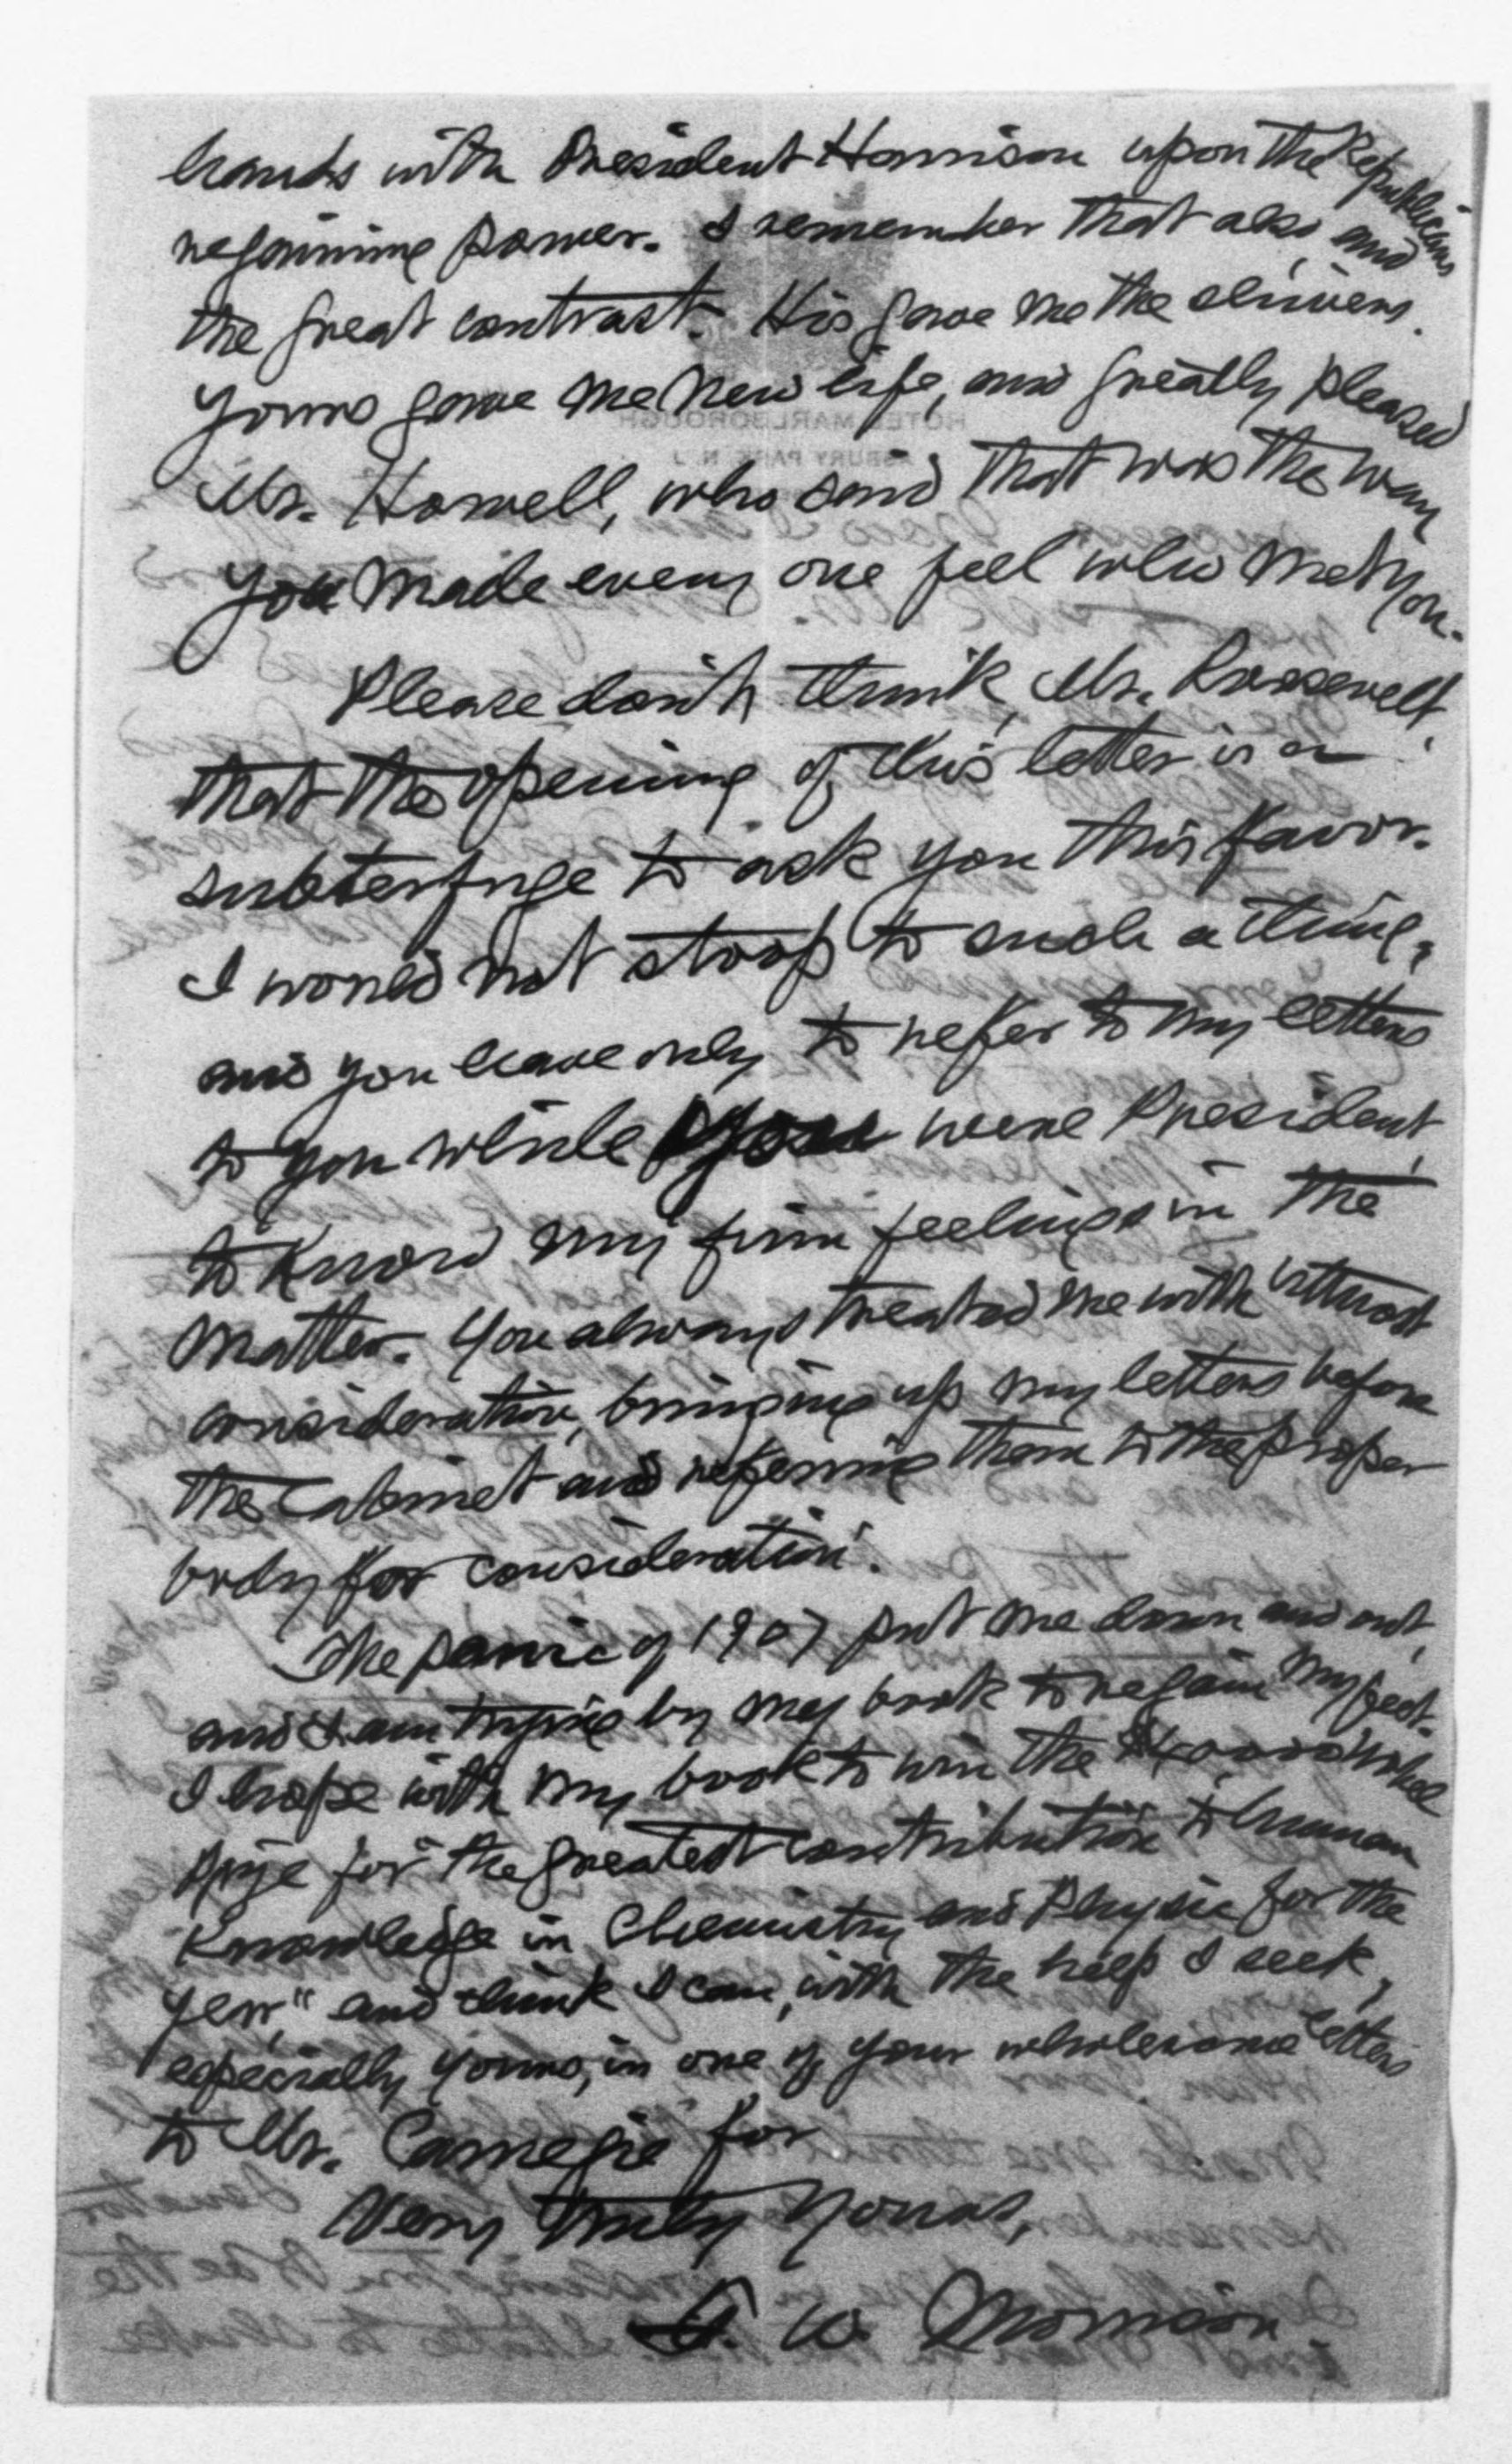 hands with President Harrison upon the Republicans
regaining power. I remember that also, and
the great contrast. His gave me the shivers.
Yours gave me new life, and greatly pleased
Mr. Howell, who said that was the way
you made every one feel who met you.
Please don't think, Mr. Roosevelt,
that the opening of this letter is a
subterfuge to ask you this favor.
I would not stoop to such a thing,
and you have only to refer to my letters
to you while you were President,
to know my firm feelings in the
matter. You always treated me with utmost
consideration, bringing up my letters before
the Cabinet and referring them to the proper
body for consideration.
The panic of 1907 put me down and out,
and I am trying by my book to regain my feet.
I hope with my book to win the
prize for the greatest contribution to human
Knowledge in Chemistry and Physic for the
year," and think I can, with the help I seek,
especially yours, in one of your wholesome letters
to Mr. Carnegie for
Very truly yours,
W. Morrison.
HOTEL MARLBOROUGH
ASBURY PARK, N. J.